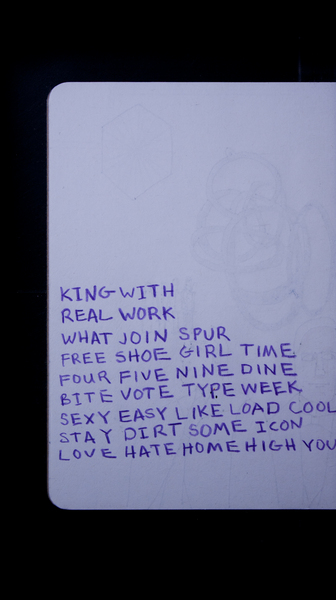 KING WITH
REAL WORK
WHAT JOIN SPUR
FREE SHOE GIRL TIME
FOUR FIVE NINE DINE
BITE VOTE TYPE WEEK
SEXY EASY LIKE LOAD COOL
STAY DIRT SOME ICON
LOVE HATE HOME HIGH YOU